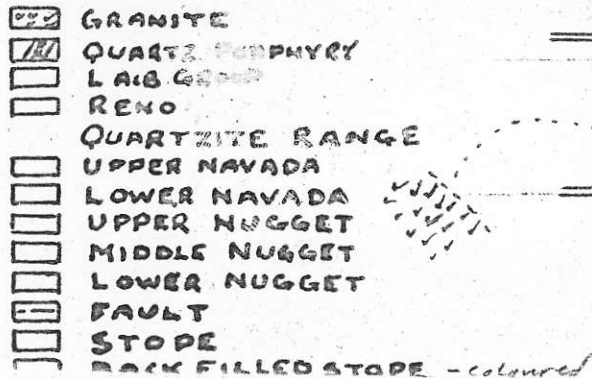 GRANITE
QUARTZ PORPHYRY
LAIB GROUP
RENO
QUARTZITE RANGE
UPPER NAVADA
LOWER NAVADA
UPPER NUGGET
MIDDLE NUGGET
LOWER NUGGET
FAULT
STOPE
BACK FILLED STOPE - coloured